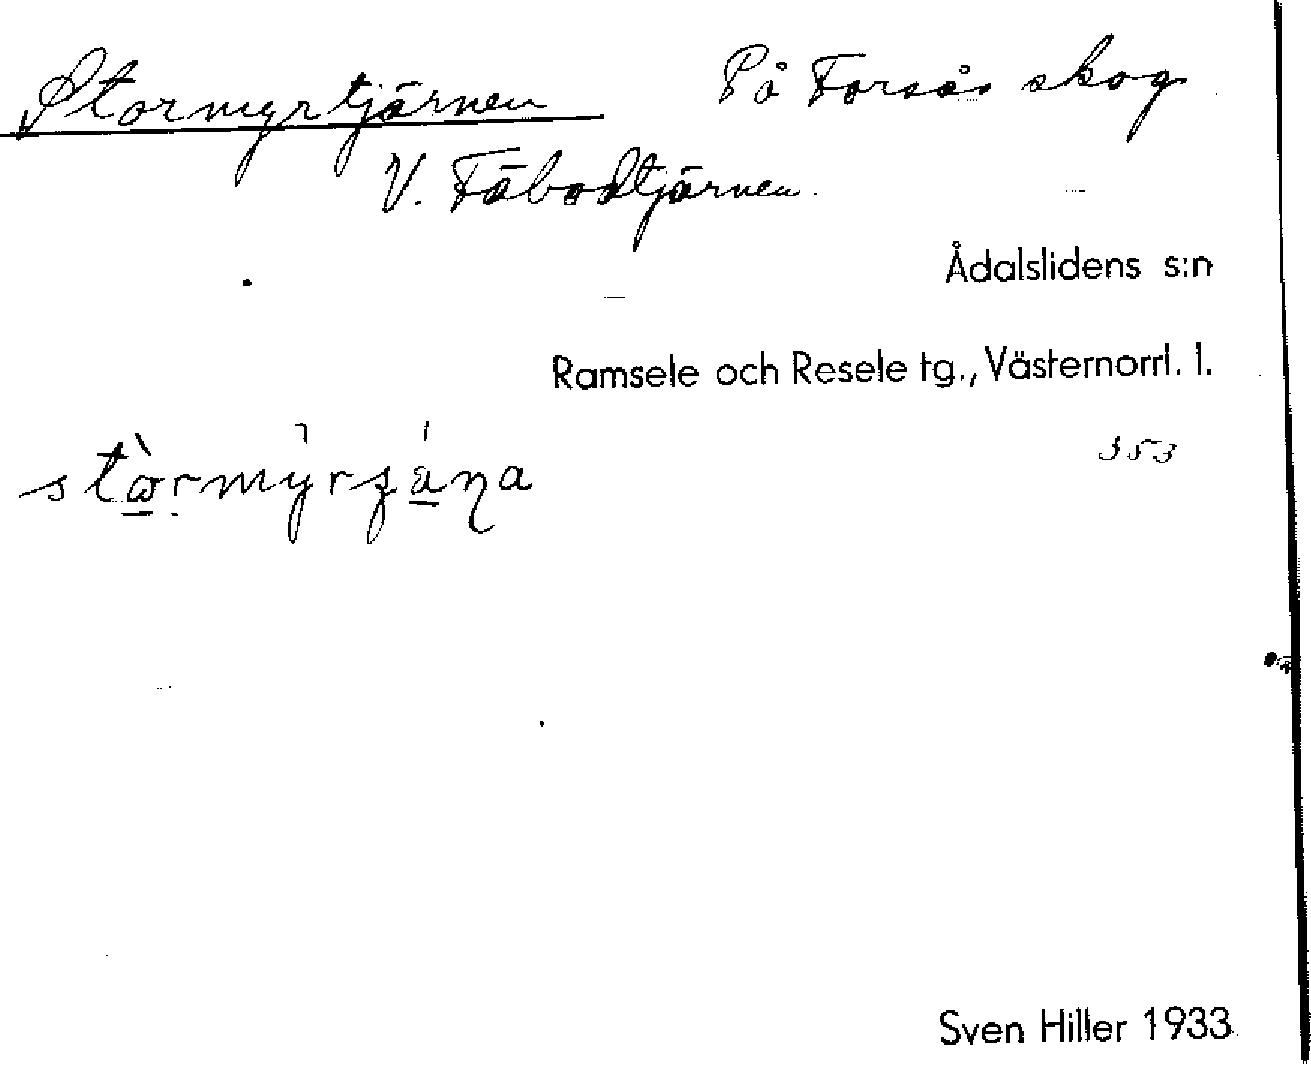 Stormyrtjärnen På Forsås skog
V. Fäbodtjärnen.
Ådalslidens s:n
Ramsele och Resele tg., Västernorrl. l.
353
Sven Hiller 1933